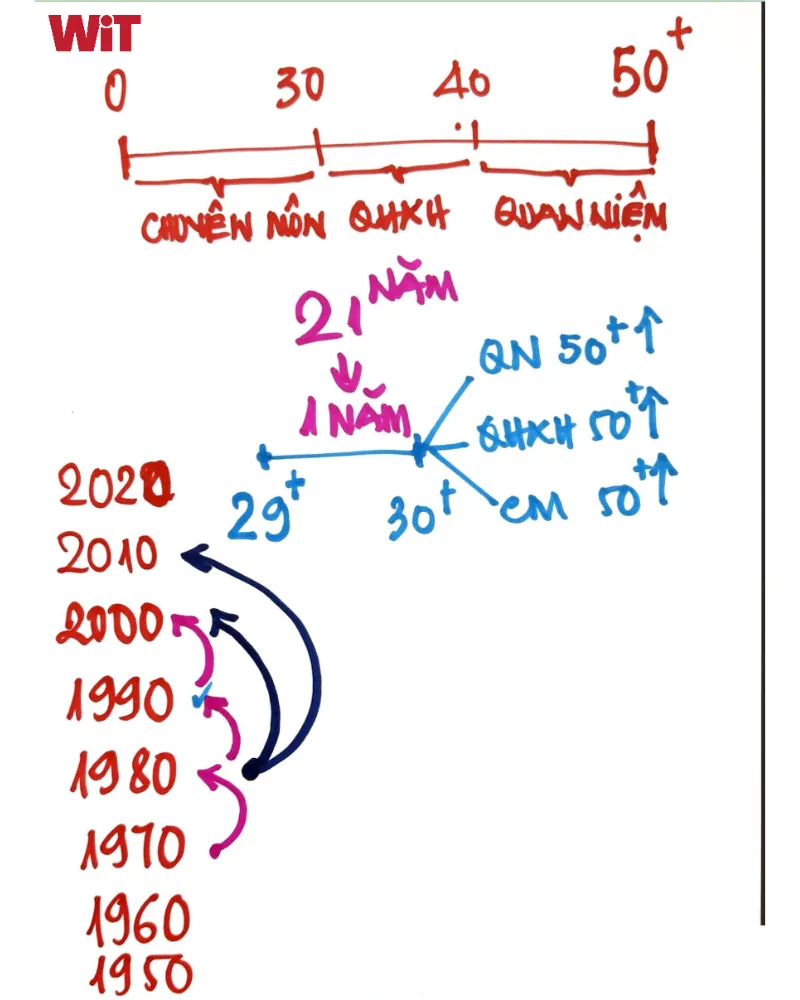 WiT
0 30 40 50+
CHUYÊN MÔN QHXH QUAN NIỆM
21 NĂM
1 NĂM
QN 50+
QHXH 50+
CM 50+
29+ 30+
2020
2010
2000
1990
1980
1970
1960
1950